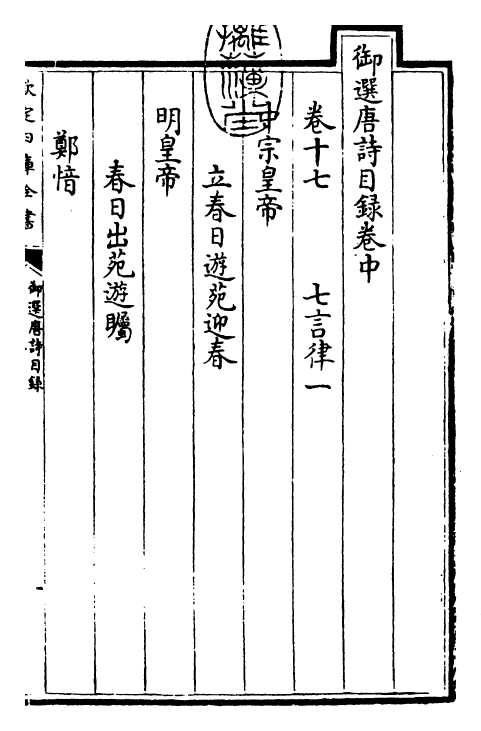 御選唐詩目録卷中
卷十七　七言律一
中宗皇帝
立春日遊苑迎春
明皇帝
春日出苑遊矚
鄭愔
欽定四庫全書
御選唐詩目録